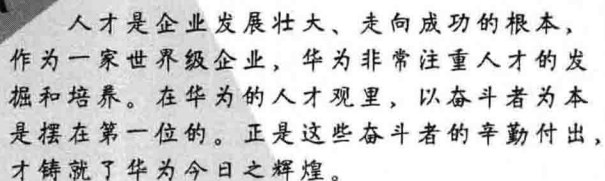 人才是企业发展壮大、走向成功的根本，
作为一家世界级企业，华为非常注重人才的发
掘和培养。在华为的人才观里，以奋斗者为本
是摆在第一位的。正是这些奋斗者的辛勤付出，
才铸就了华为今日之辉煌。